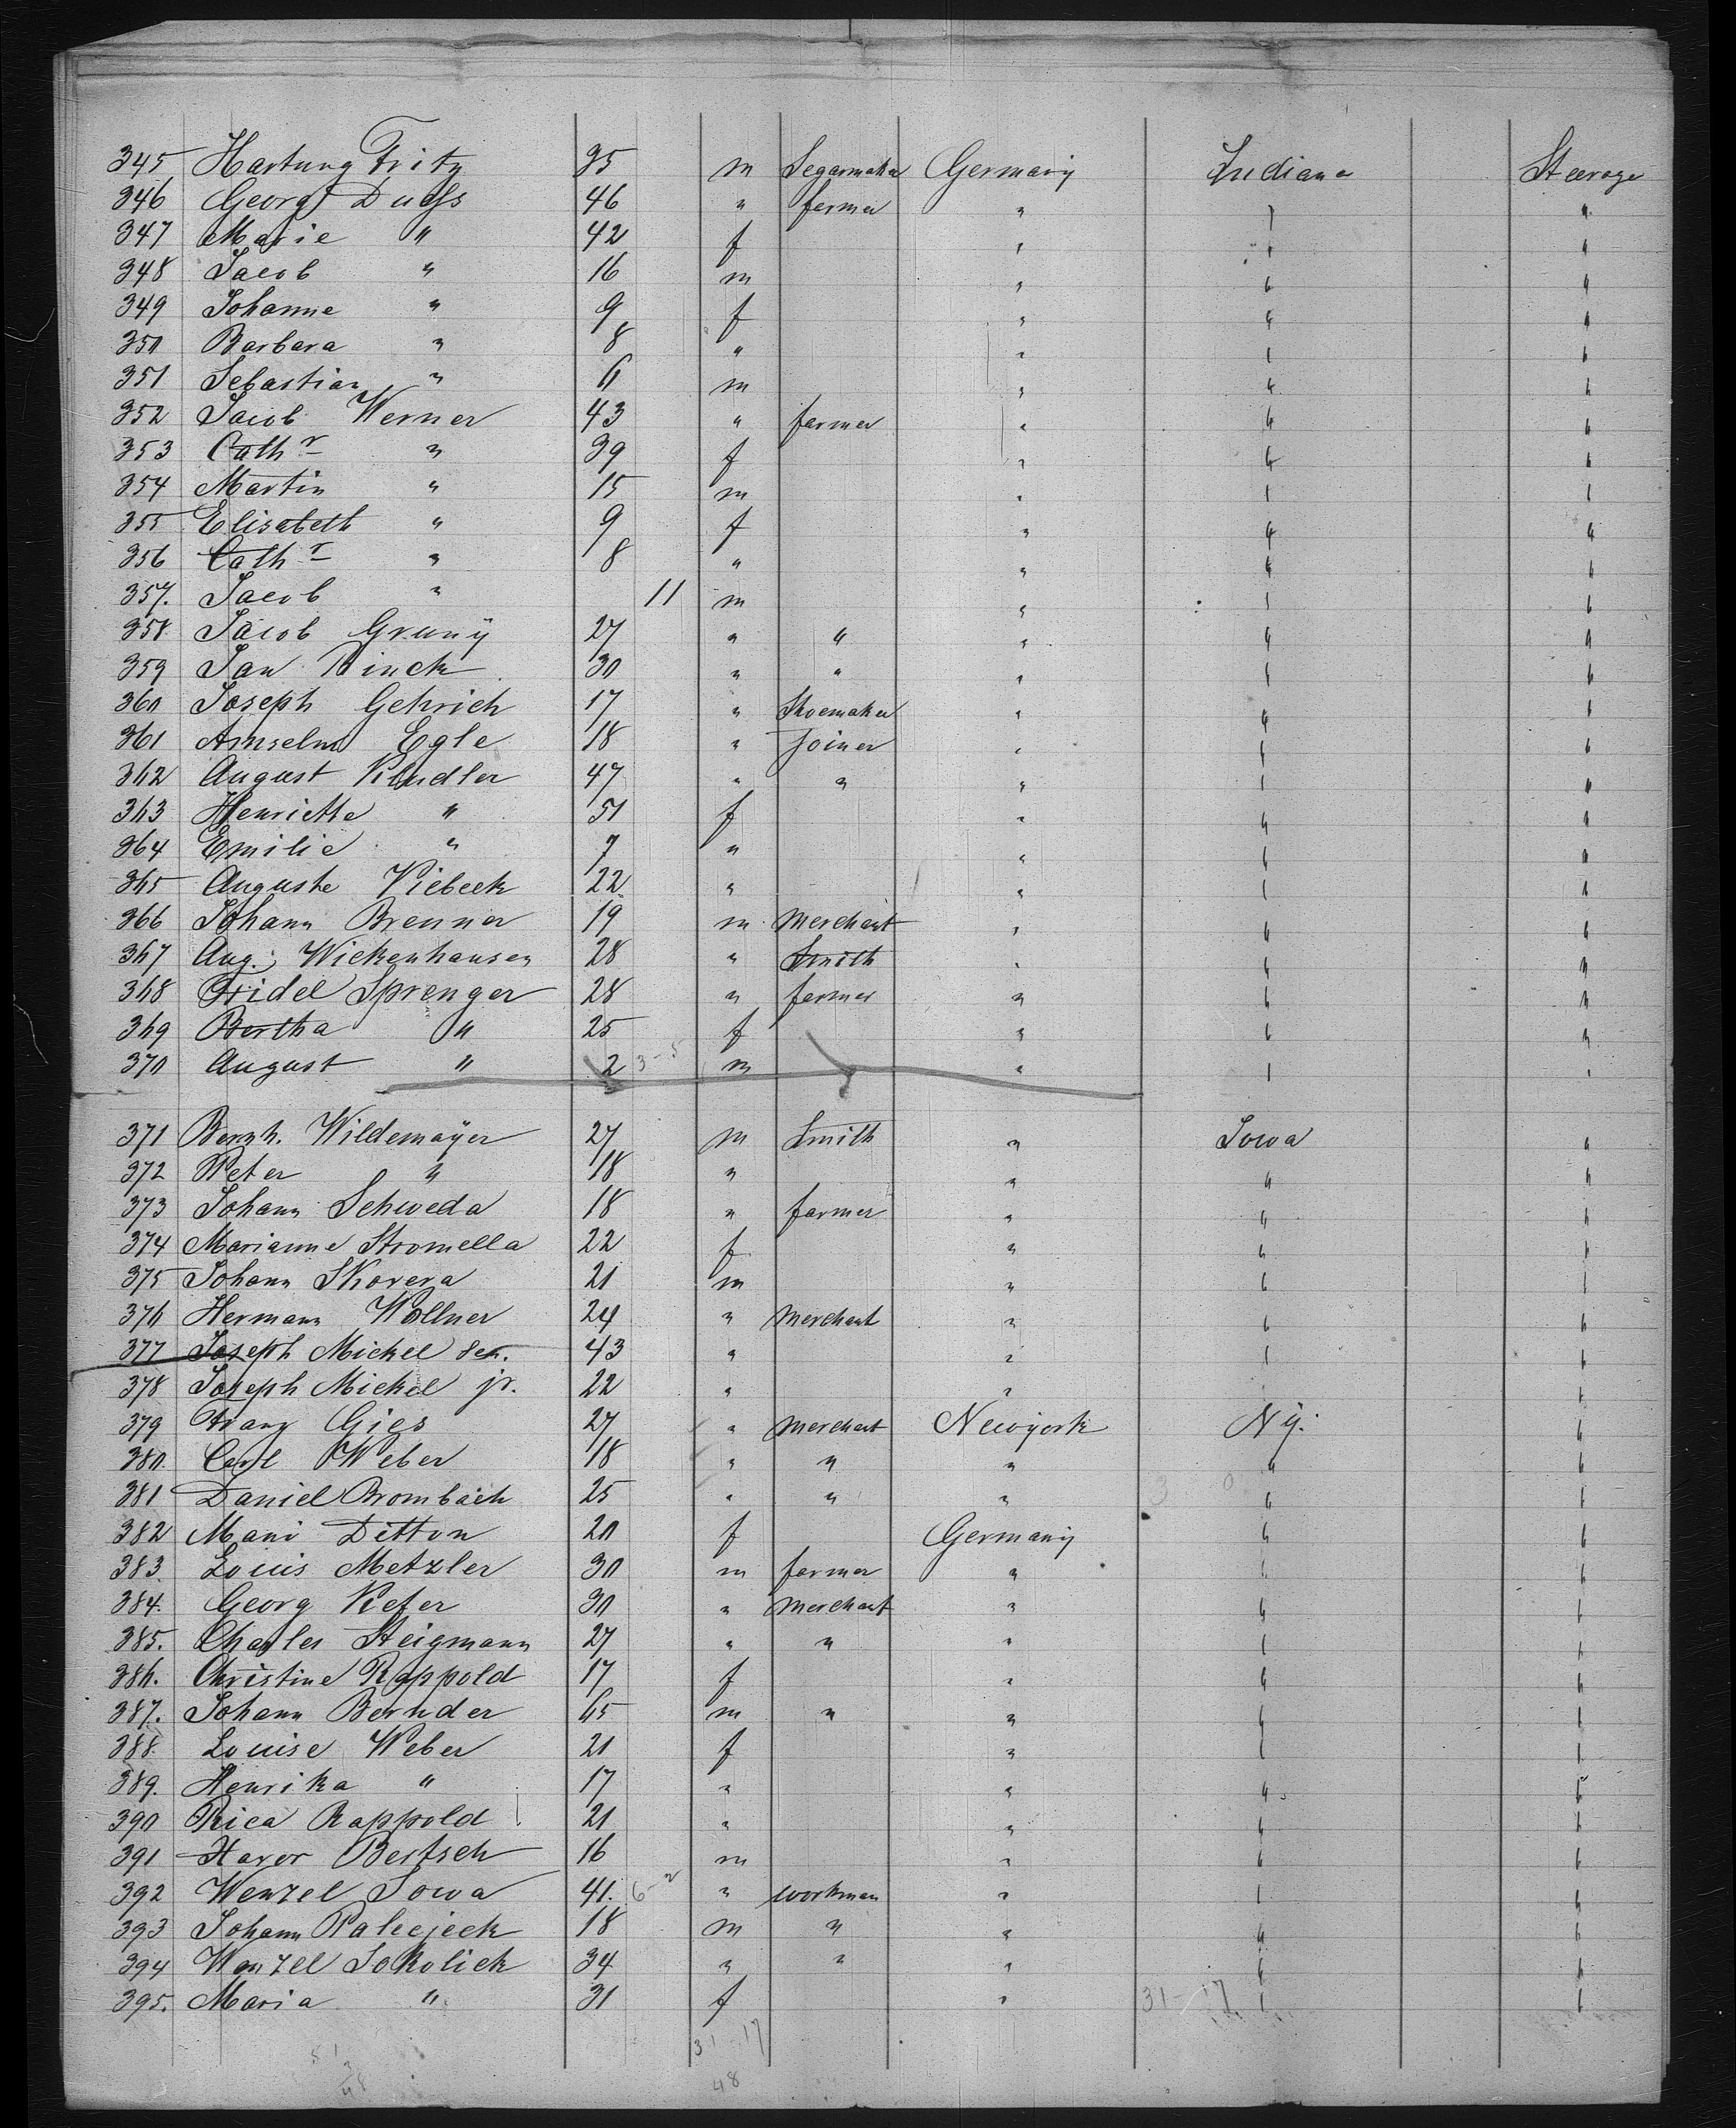 345 Hartung Fritz 35 m Segarmaker Germany Indiana Steerage
346 Georg Duess 46 " farmer " " "
347 Marie " 42 f " " "
348 Jacob " 16 m " " "
349 Johanne " 9 f " " "
350 Barbara " 8 " " " "
351 Sebastian " 6 m " " "
352 Jacob Werner 43 " farmer " " "
353 Cathr " 39 f " " "
354 Martin " 15 m " " "
355 Elisabeth " 9 f " " "
356 Cathr " 8 " " " "
357. Jacob " 11 m " " "
358. Jacob Gruny 27 " " " " "
359 Jan Rinck 30 " " " " "
360 Joseph Gehrich 17 " Shoemaker " " "
361 Amselm Egle 18 " Joiner " " "
362 August Kindler 47 " " " " "
363 Henriette " 51 f " " "
364 Emilie " 7 " " " "
365 Auguste Viebeck 22 " " " "
366 Johann Brenner 19 m Merchant " " "
367 Aug. Wickenhausen 28 " Smith " " "
368 Fridel Sprenger 28 " farmer " " "
369 Bertha " 25 f " " "
370 August " 2 3-5 m " " "
371 Bernh. Wildemayer 27 m Smith " Iowa "
372 Peter " 18 " " " "
373 Johann Schweda 18 " farmer " " "
374 Marianne Stromella 22 f " " "
375 Johann Skovera 21 m " " "
376 Hermann Wollner 24 " Merchant " " "
377 Joseph Mickel sen. 43 " " " "
378 Joseph Mickel jr. 22 " " " "
379 Franz Gies 27 " Merchant Newyork Ny. "
380. Carl Weber 18 " " " " "
381 Daniel Brombach 25 " " " " "
382 Mani Ditton 20 f Germany " "
383. Louis Metzler 30 m farmer " " "
384. Georg Kefer 30 " Merchant " " "
385. Charles Steigmann 27 " " " " "
386. Christine Rappold 17 f " " "
387. Johann Bernder 65 m " " " "
388. Louise Weber 21 f " " "
389. Henrika " 17 " " " "
390 Rica Rappold 21 " " " "
391 Xaver Bertsch 16 m " " "
392 Wenzel Sowa 41. " workman " " "
393 Johann Palecjeck 18 m " " " "
394 Wenzel Sokolick 34 " " " " "
395. Maria " 31 f " " "
31-17
31 17
48